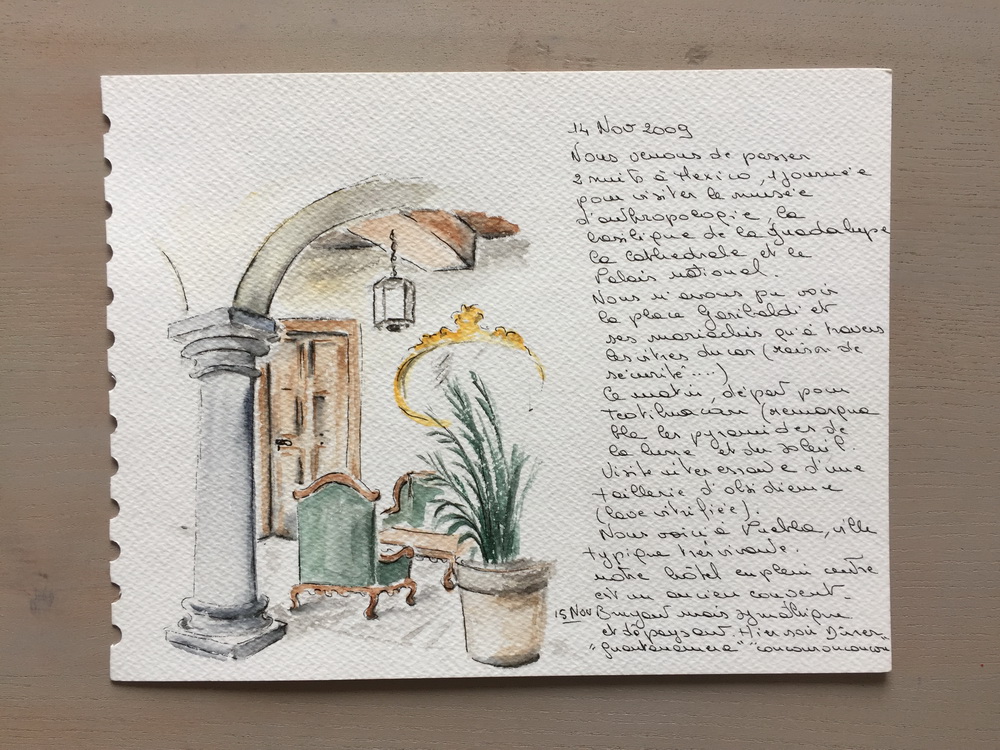 14 Nov 2009
Nous venons de passer
2 nuits à Mexico, 1 journée
pour visiter le musée
d'anthropologie, la
basilique de la Guadalupe
la cathédrale et le
Palais national.
Nous n'avons pu voir
la place Garibaldi et
ses mariachis qu'à travers
les vitres du car (raison de
sécurité....)
Ce matin, départ pour
Teotihuacan (remarqua
ble les pyramides de
la lune et du soleil.
Visite interessante d'une
taillerie d'obsidienne
(lave vitrifiée).
Nous voici à Puebla, ville
typique très vivante.
notre hôtel en plein centre
est un ancien couvent.
15 Nov Bruyant mais sympathique
et dépaysant. Hier soir Diner
"guantanamera"